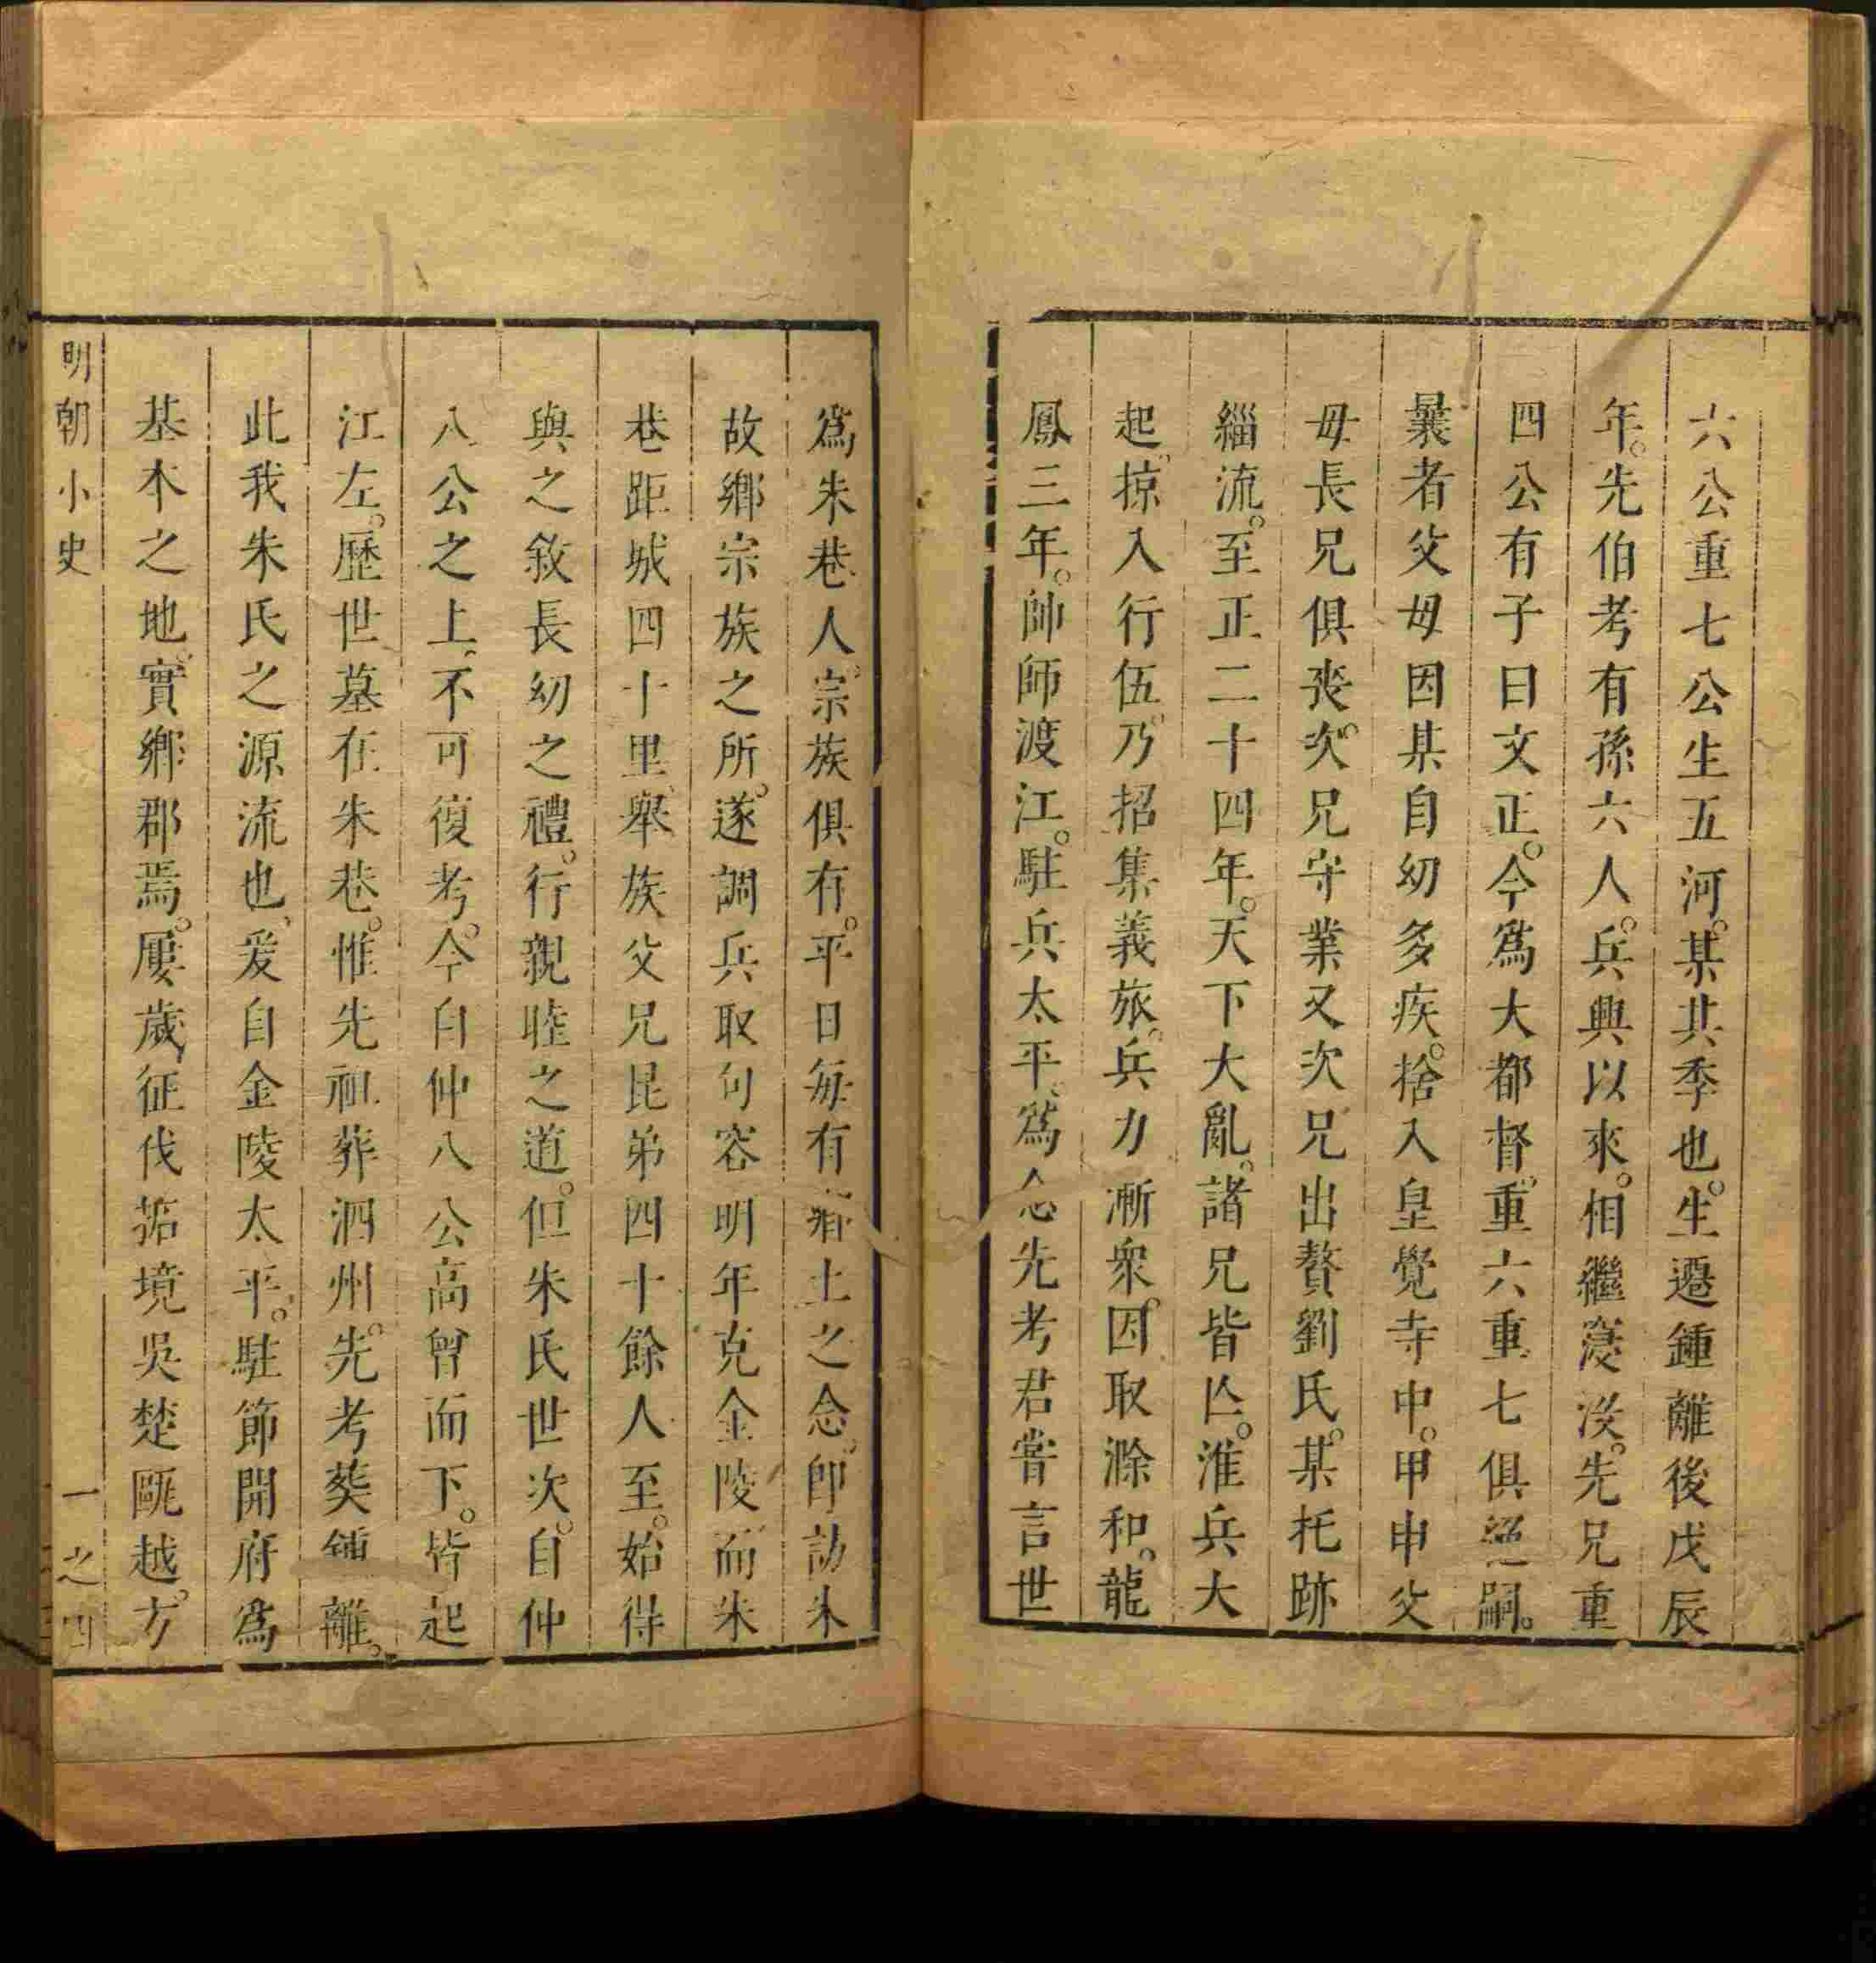 六公重七公生五河。某其季也。生遷鍾離後戊辰
年。先伯考有孫六人。兵興以來。相繼寖沒。先兄重
四公有子曰文正。今爲大都督。重六重七俱絕嗣。
曩者父母因某自幼多疾。捨入皇覺寺中。甲申父
母長兄俱喪。次兄守業又次兄出贅劉氏。某托跡
緇流。至正二十四年。天下大亂。諸兄皆亾。淮兵大
起。掠入行伍。乃招集義旅。兵力漸衆。因取滁和。龍
鳳三年。帥師渡江。駐兵太平。爲念先考君嘗言世
爲朱巷人。宗族俱存。平日每有鄉土之念。卽訪朱
故鄉宗族之所。遂調兵取句容明年克金陵而朱
巷距城四十里。舉族父兄昆弟四十餘人至。始得
與之敘長幼之禮。行親睦之道。但朱氏世次。自仲
八公之上。不可復考。今自仲八公高曾而下。皆起
江左。歷世墓在朱巷。惟先祖葬泗州。先考葬鍾離。
此我朱氏之源流也、爰自金陵太平。駐節開府爲
基本之地。實鄉郡焉。屢歲征伐拓境吳楚甌越。方
明朝小史
一之四